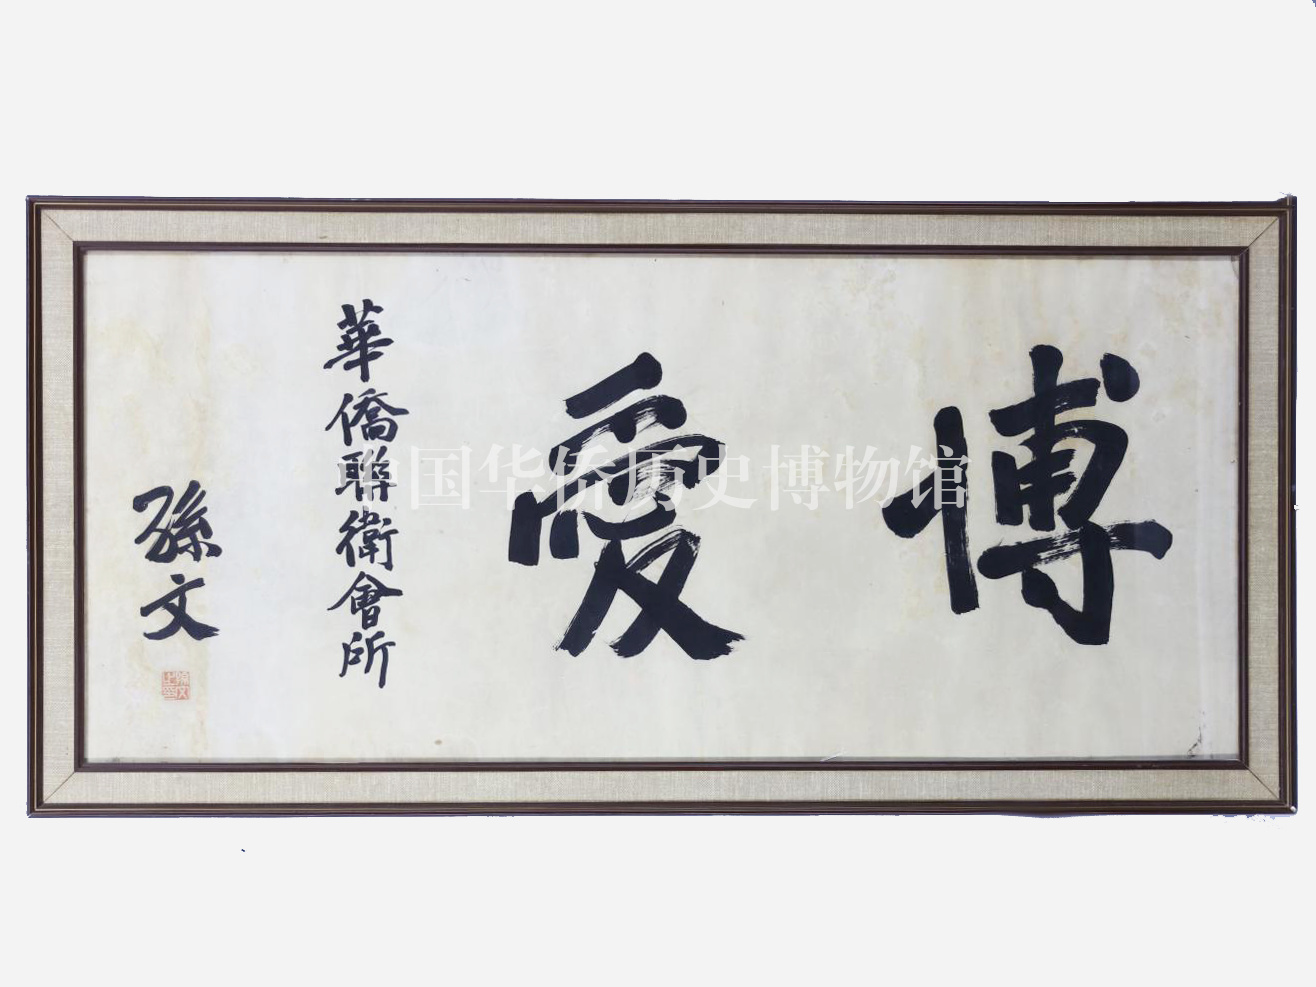 博愛
華僑聯衛會所
孫文
孫文之印
中国华侨历史博物馆